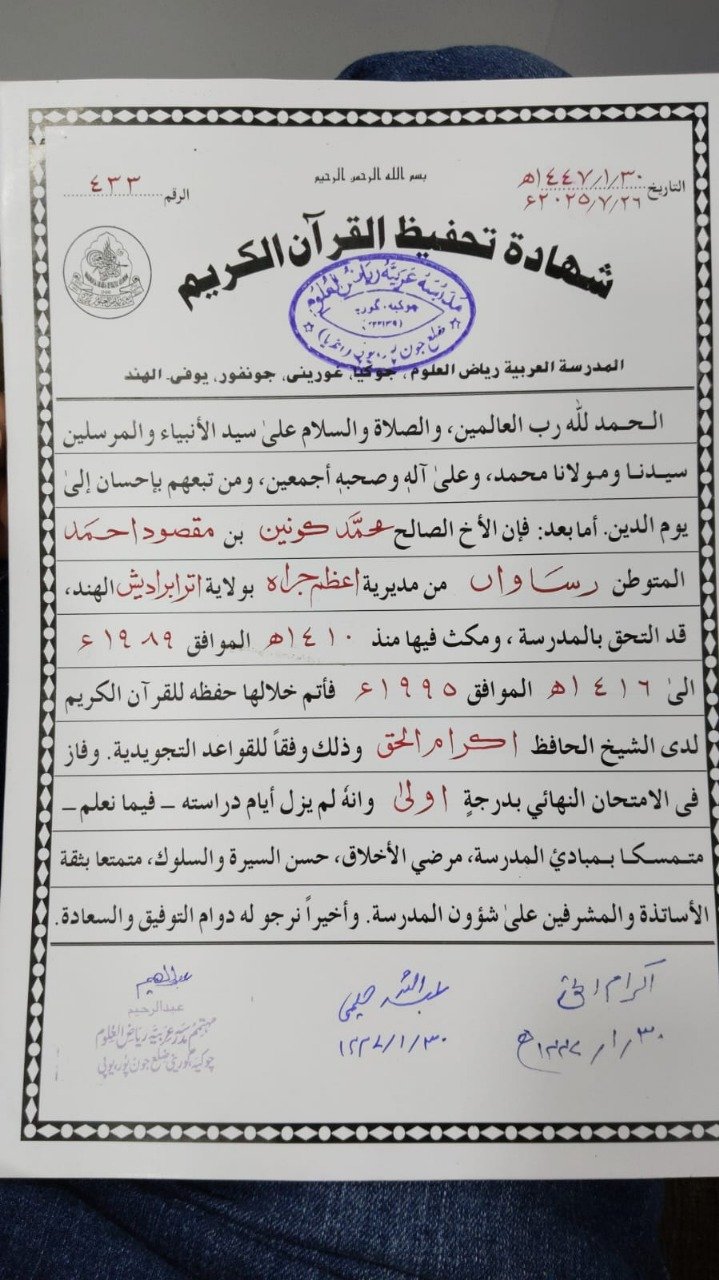 بسم الله الرحمن الرحيم
التاريخ ١٤٤٧/١/٣٠ھ
٢٠٢٥/٧/٢٦ء
الرقم ٤٣٣
شهادة تحفيظ القرآن الكريم
مدرسہ عربیہ ریاض العلوم
چوکیہ، گورینی
ضلع جون پور، یوپی (انڈیا)
المدرسة العربية رياض العلوم، جوكيا، غورينى، جونفور، يوفى. الهند
الـحـمد لله رب العالمين، والصلاة والسلام علىٰ سيد الأنبياء والمرسلين
سيدنا ومولانا محمد، وعلىٰ آلهٖ وصحبهٖ أجمعين، ومن تبعهم بإحسان إلىٰ
يوم الدين. أما بعد: فإن الأخ الصالح محمَّد كونين بن مقصود احمد
المتوطن رساواں من مديرية اعظم جراه بولاية اترابراديش الهند،
قد التحق بالمدرسة، ومكث فيها منذ ١٤١٠ھ الموافق ١٩٨٩ء
الىٰ ١٤١٦ھ الموافق ١٩٩٥ء فأتم خلالها حفظه للقرآن الكريم
لدى الشيخ الحافظ اكرام الحق وذلك وفقاً للقواعد التجويدية. وفاز
فى الامتحان النهائي بدرجةٍ اولىٰ وانهٗ لم يزل أيام دراسته ــ فيما نعلم ــ
متـمسكـا بـمبادئ المدرسة، مرضي الأخلاق، حسن السيرة والسلوك، متمتعا بثقة
الأساتذة والمشرفين علىٰ شؤون المدرسة. وأخيراً نرجو له دوام التوفيق والسعادة.
اکرام الحق
٣٠/١/١٤٤٧ھ
١٤٤٧/١/٣٠
عبدالرحیم
عبدالرحیم
مہتمم مدرسہ عربیہ ریاض العلوم
چوکیہ گورینی ضلع جون پور، یوپی